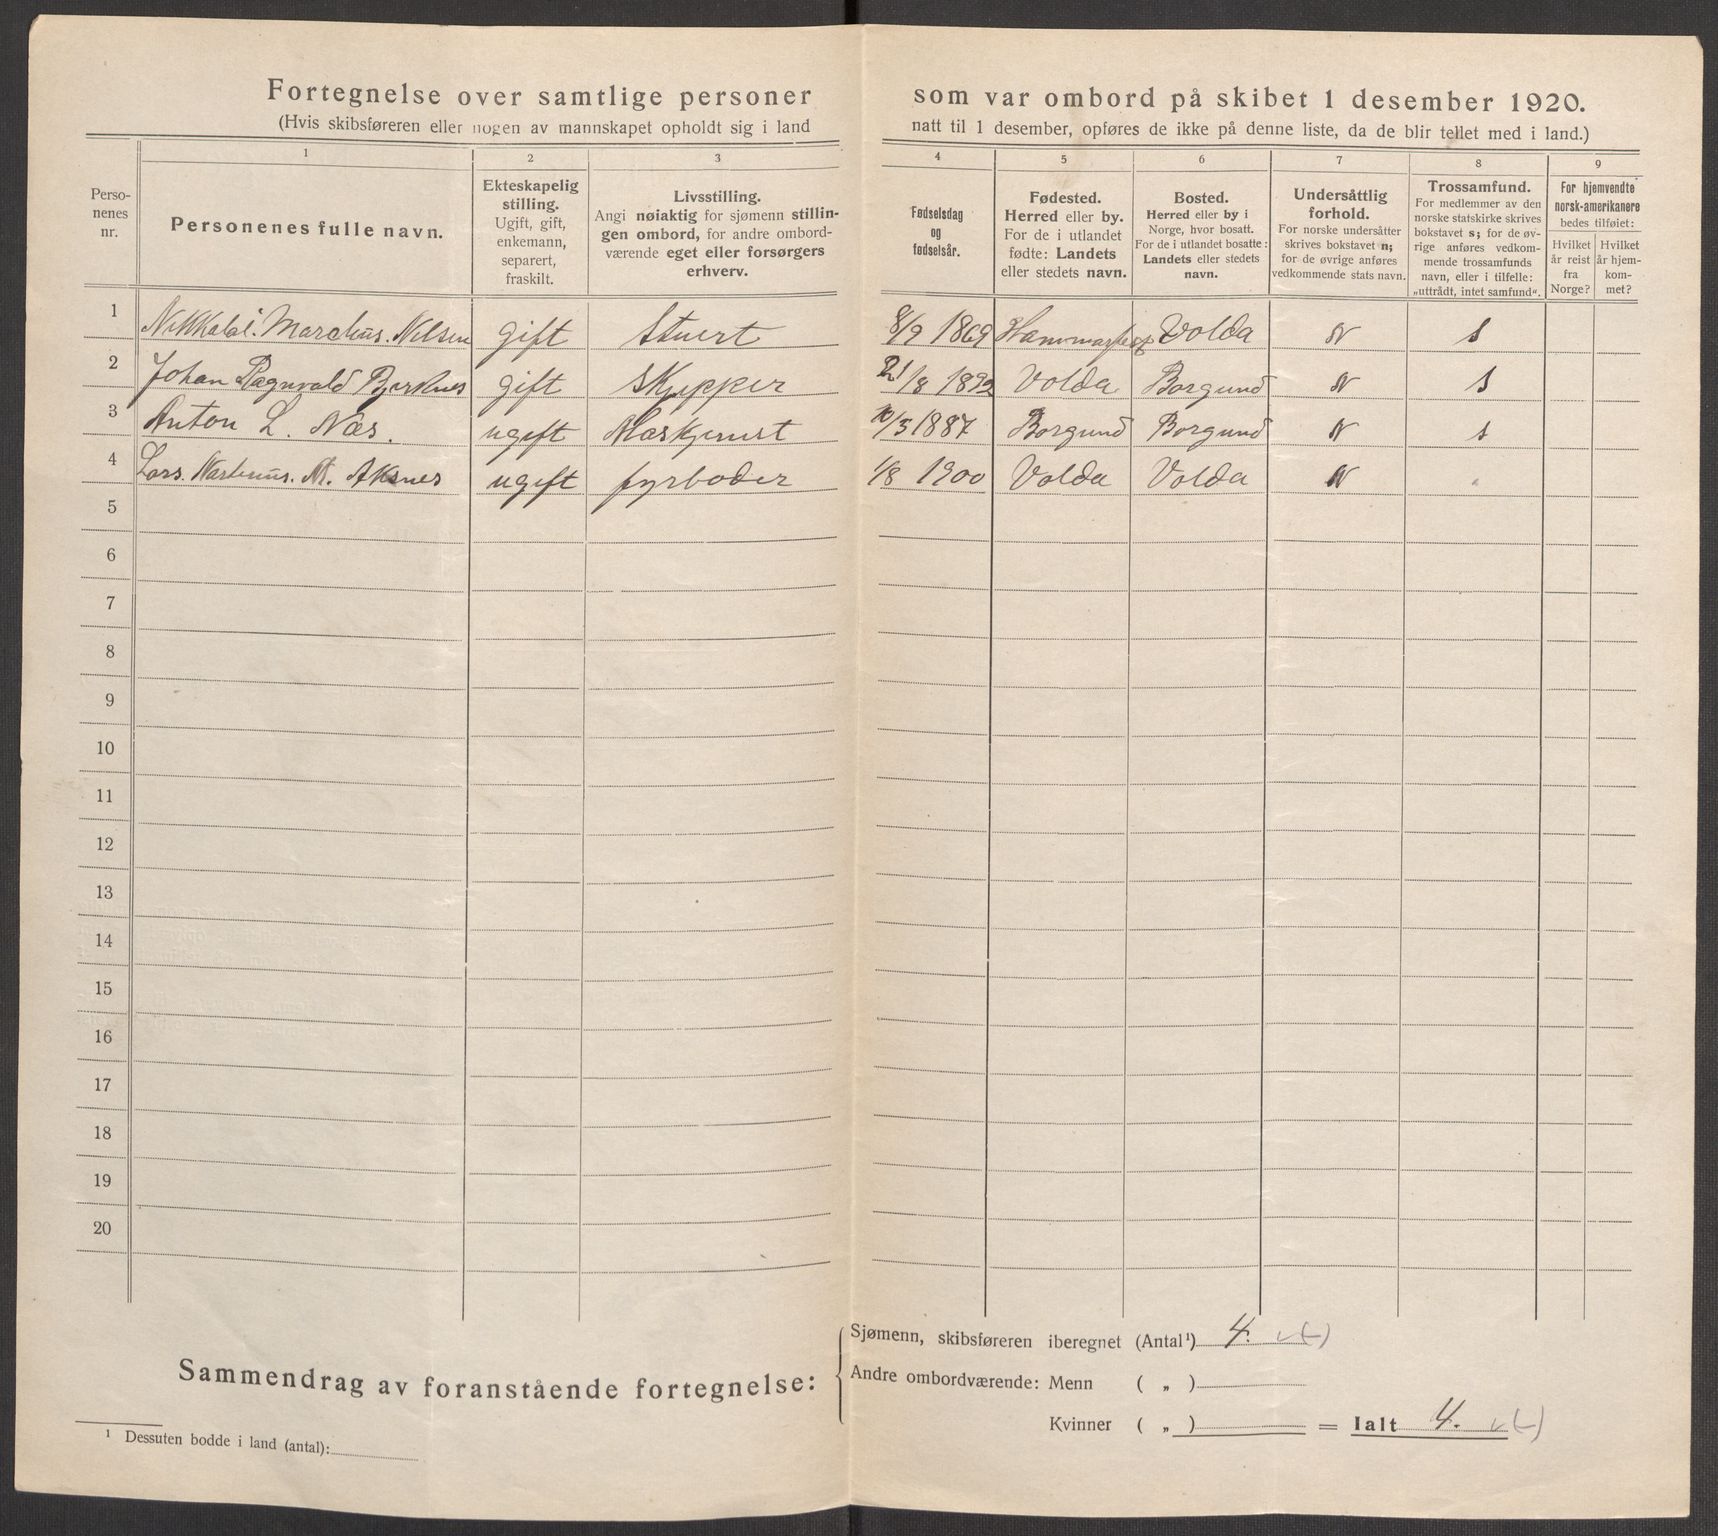 Fortegnelse over samtlige personer som var ombord på skibet 1 desember 1920.
(Hvis skibsføreren eller nogen av mannskapet opholdt sig i land natt til 1 desember, opføres de ikke på denne liste, da de blir tellet med i land.)
Perso-
nenes
nr.
1
Personenes fulle navn.
2
Ekteskapelig
stilling.
Ugift, gift,
enkemann,
separert,
fraskilt.
3
Livsstilling.
Angi nøiaktig for sjømenn stillin-
gen ombord, for andre ombord-
værende eget eller forsørgers
erhverv.
4
Fødselsdag
og
fødselsår.
5
Fødested.
Herred eller by.
For de i utlandet
fødte: Landets
eller stedets navn.
6
Bosted.
Herred eller by i
Norge, hvor bosatt.
For de i utlandet bosatte:
Landets eller stedets
navn.
7
Undersåttlig
forhold.
For norske undersåtter
skrives bokstavet n;
for de øvrige anføres
vedkommende stats navn.
8
Trossamfund.
For medlemmer av den
norske statskirke skrives
bokstavet s; for de øv-
rige anføres vedkom-
mende trossamfunds
navn, eller i tilfelle:
„uttrådt, intet samfund“.
9
For hjemvendte
norsk-amerikanere
bedes tilføiet:
Hvilket
år reist
fra
Norge?
Hvilket
år hjem-
kom-
met?
1 Marchus. Nilsen gift Stuert 8/9 1869 Volda N s
2 Johan Ragnvald Bjerknes gift Skjepper 21/8 1892 Volda Borgund N s
3 Anton L. Næs. ugift Maskjenist 10/5 1887 Borgund Borgund N s
4 Lars. M. Aksnes ugift fyrbøder 1/8 1900 Volda Volda N
5
6
7
8
9
10
11
12
13
14
15
16
17
18
19
20
Sammendrag av foranstående fortegnelse:
Sjømenn, skibsføreren iberegnet (Antal¹) 4.
Andre ombordværende: Menn ( „ )
Kvinner ( „ ) = Ialt 4.
¹ Dessuten bodde i land (antal):